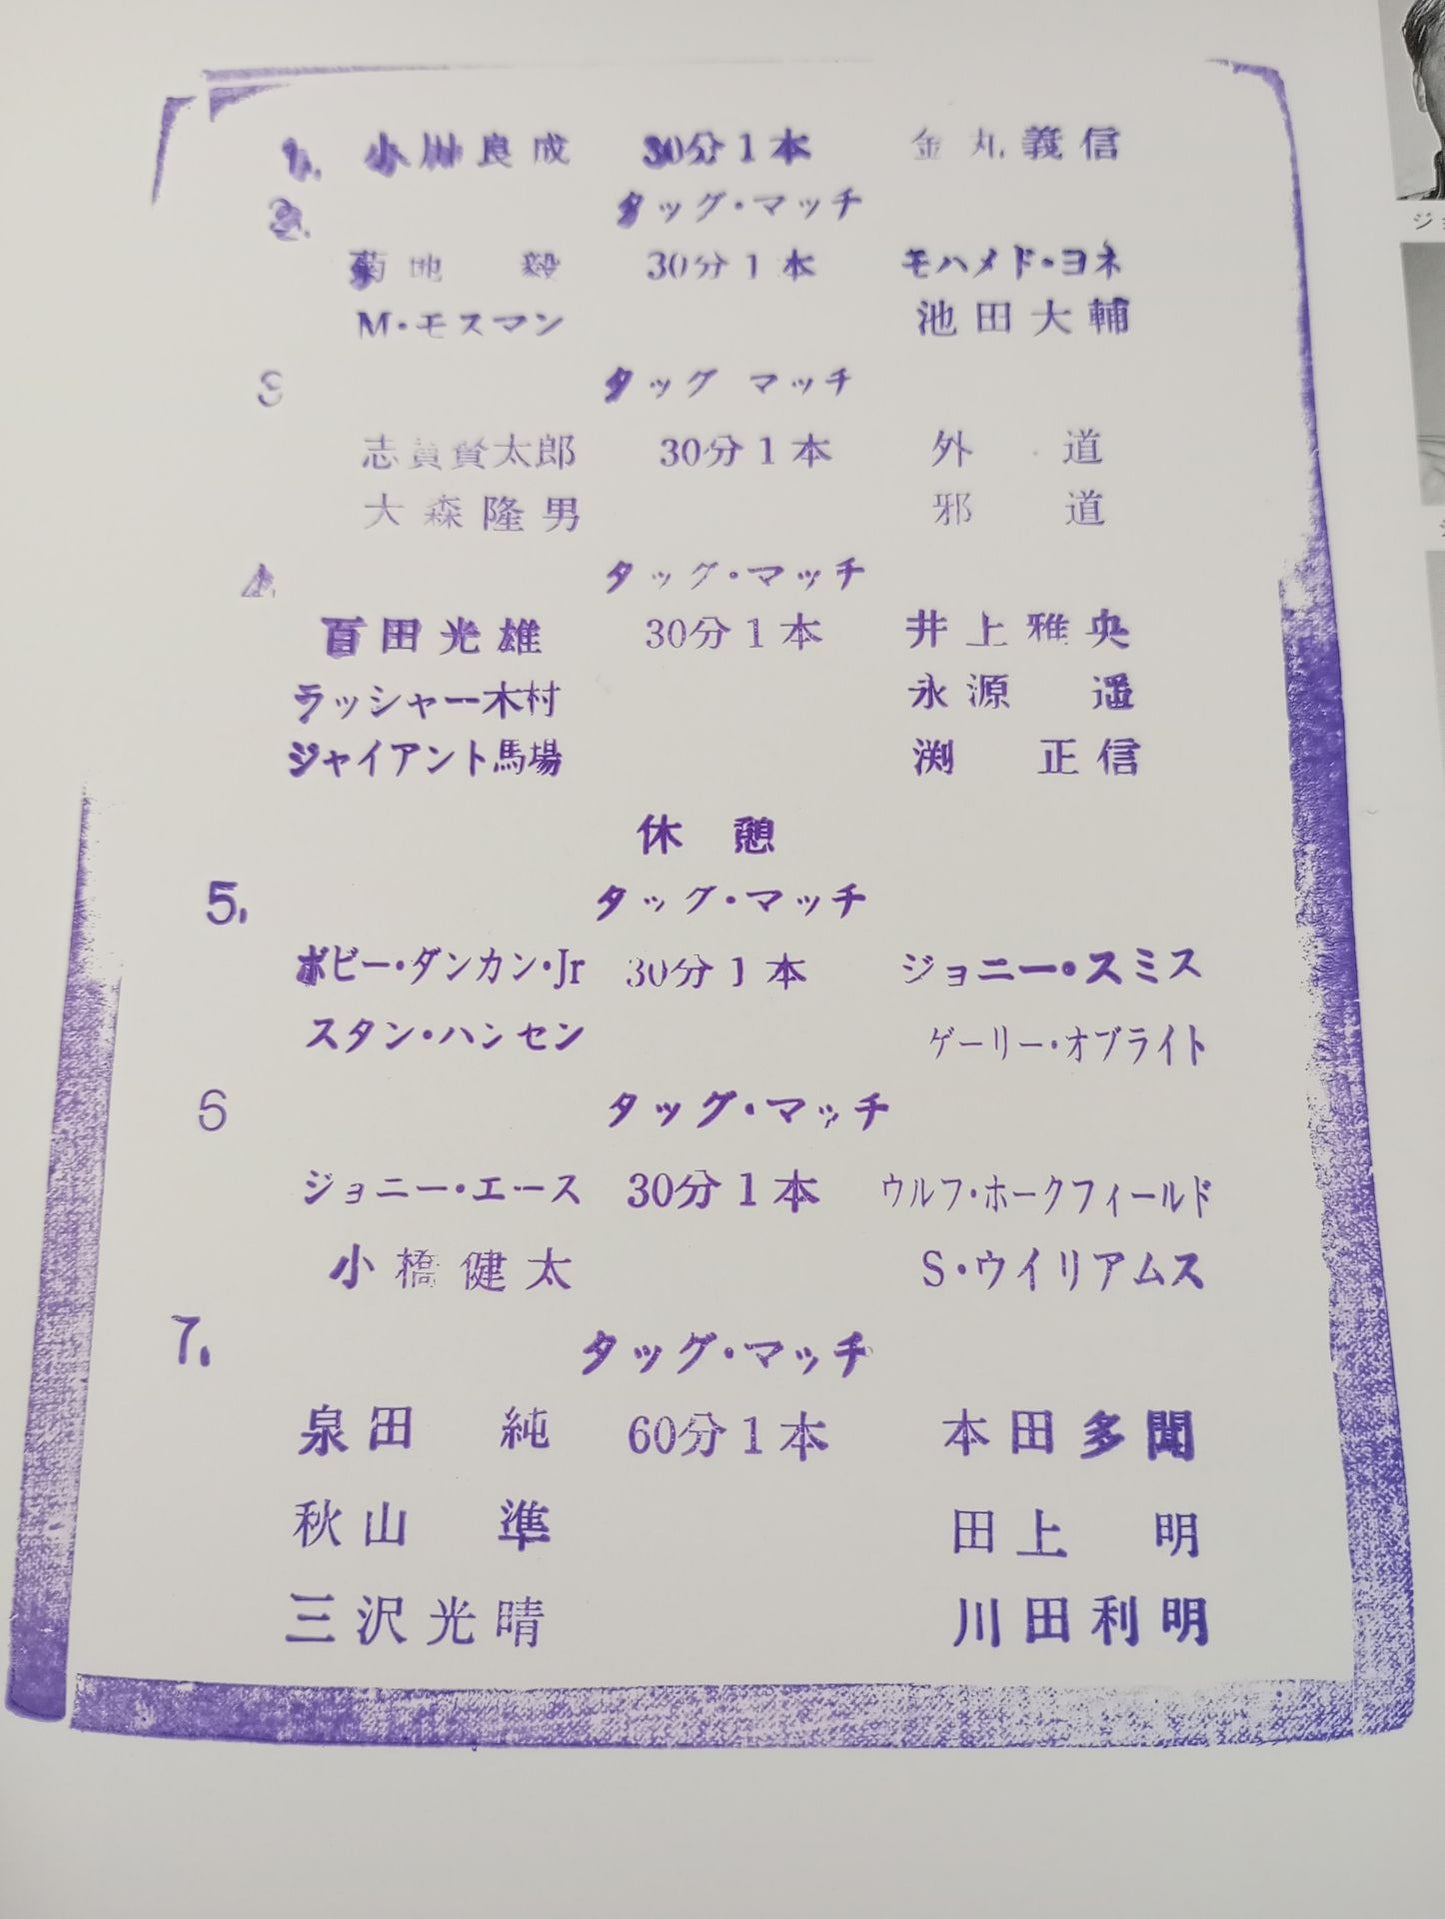 1. 小川良成 30分1本 金丸義信
2. タッグ・マッチ
菊地 毅 30分1本 モハメド・ヨネ
M・モスマン 池田大輔
3 タッグ マッチ
志賀賢太郎 30分1本 外 道
大森隆男 邪 道
4. タッグ・マッチ
百田光雄 30分1本 井上雅央
ラッシャー木村 永源 遥
ジャイアント馬場 渕 正信
休 憩
5. タッグ・マッチ
ボビー・ダンカン・Jr 30分1本 ジョニー・スミス
スタン・ハンセン ゲーリー・オブライト
6 タッグ・マッチ
ジョニー・エース 30分1本 ウルフ・ホークフィールド
小橋健太 S・ウイリアムス
7. タッグ・マッチ
泉田 純 60分1本 本田多聞
秋山 準 田上 明
三沢光晴 川田利明